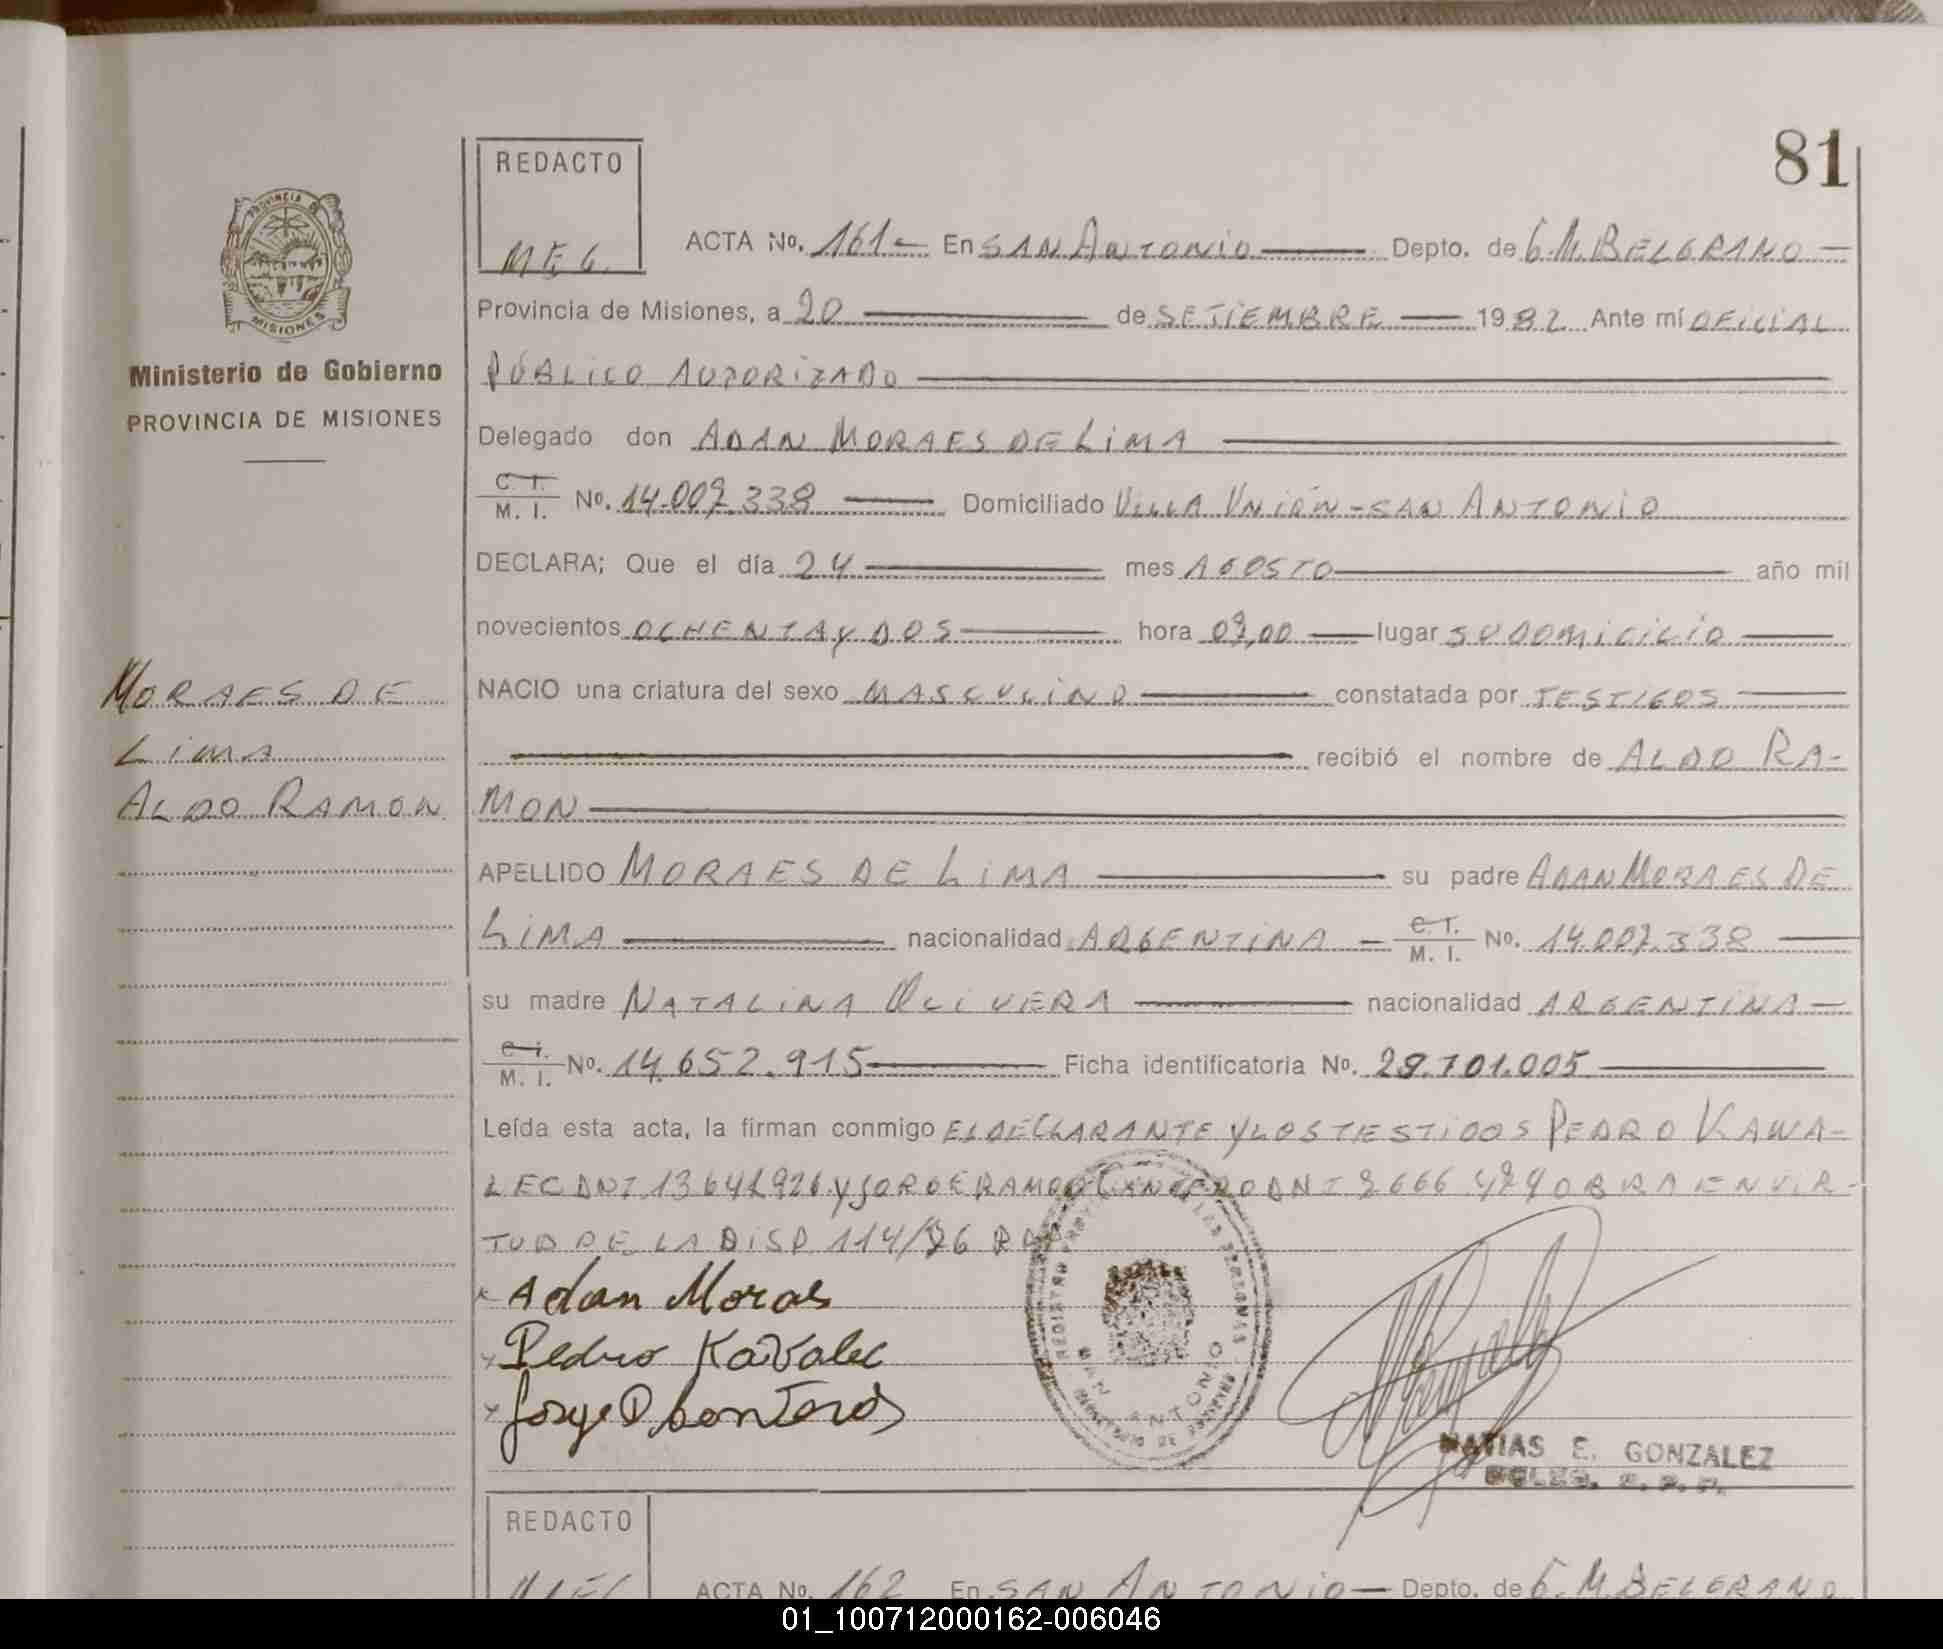 81
REDACTO
M E G.
ACTA No. 161 - En SAN ANTONIO Depto. de G. M. BELGRANO
Provincia de Misiones, a 20 de SETIEMBRE 1982 Ante mí OFICIAL
PÚBLICO AUTORIZADO
Delegado don ADAN MORAES DE LIMA
C. I. M. I. No. 14.007.338 Domiciliado VILLA UNIÓN - SAN ANTONIO
DECLARA; Que el día 24 mes AGOSTO año mil
novecientos OCHENTA y DOS hora 07,00 lugar SU DOMICILIO
NACIO una criatura del sexo MASCULINO constatada por TESTIGOS
recibió el nombre de ALDO RA-
MON
APELLIDO MORAES DE LIMA su padre ADAN MORAES DE
LIMA nacionalidad ARGENTINA C. I. M. I. No. 14.007.338
su madre NATALINA OLIVERA nacionalidad ARGENTINA
C. I. M. I. No. 14.652.915 Ficha identificatoria No. 29.701.005
Leída esta acta, la firman conmigo EL DECLARANTE y LOS TESTIGOS PEDRO KAWA-
LEC DNI y JORGE RAMON DNI OBRA EN VIR-
TUD DE LA DISP 114/76
Adan Moraes
Pedro Kavalec
Jorge
SAN ANTONIO
MATIAS E. GONZALEZ
PROVINCIA DE MISIONES
Ministerio de Gobierno
PROVINCIA DE MISIONES
MORAES DE
LIMA
ALDO RAMON
REDACTO
ACTA No. 162 En SAN ANTONIO Depto. de G. M. BELGRANO
01_100712000162-006046